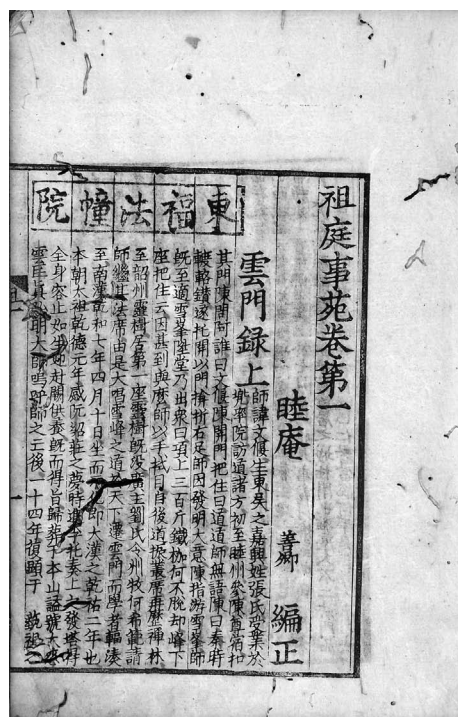 祖庭事苑卷第一
睦庵 善卿 編正
東福法幢院
雲門録上
師諱文偃生東吳之嘉興姓張氏受業於
兜率院訪道諸方初至睦州參陳尊宿扣
其門陳問阿誰曰文偃陳開門把住曰道道師無語陳曰秦時
轢鑽遂托開以門揜折右足師因發明大意陳指游雪峯師
既至適雪峯陞堂乃出衆曰項上三百斤鐵枷何不脫却峰下
座把住云因甚到與麼師以手拭目自後道振叢席再歷禪林
至韶州靈樹居第一座靈樹既沒廣主劉氏令州牧何希範請
師繼其法席由是大唱雪峰之道於天下遷雲門而學者輻湊
至南漢乾和七年四月十日坐而即大漢之乾祐二年也
本朝太祖乾德元年感阮紹莊之夢時李托奏上之發塔得
全身容止如生迎赴闕供養既而得旨歸葬于本山謚號大慈
雲匡真弘明大師嗚呼師之亡後一十四年復顯于